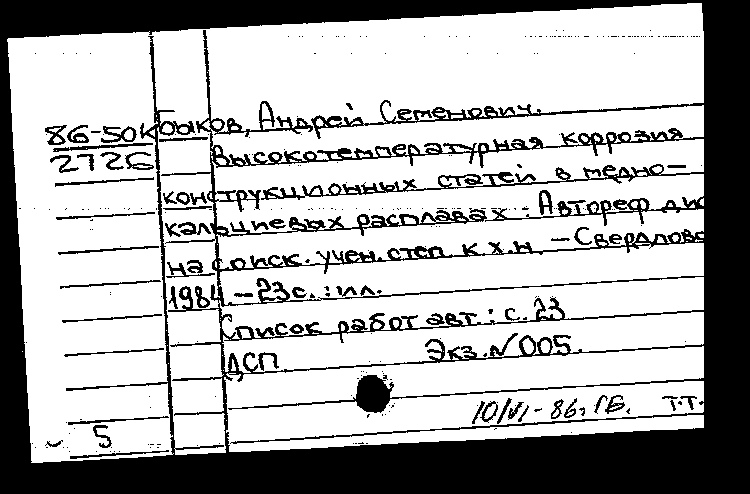 86-50к Быков, Андрей Семенович.
2726 Высокотемпературная коррозия
конструкционных статей в медно-
кальциевых расплавах : Автореф дис
на соиск. учен. степ к.х.н. - Свердловс
1984. - 23 с. : ил.
Список работ авт. : с. 23
ДСП. Экз. № 005.
10/VI - 86, ГБ. Т.Т.
5